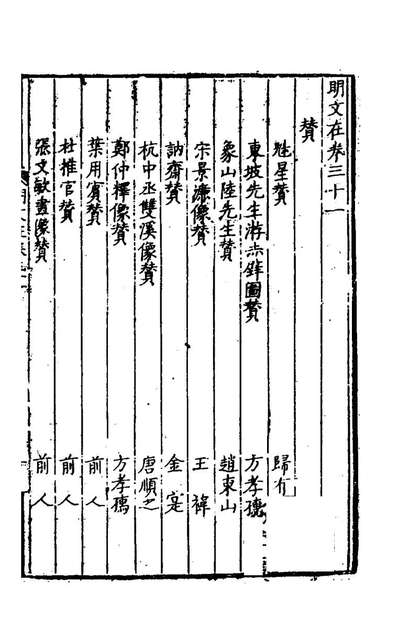 明文在卷三十一
贊
魁星贊 歸有
東坡先生游赤壁圖贊 方孝孺
象山陸先生贊 趙東山
宋景濂像贊 王褘
訥齋贊 金寔
杭中丞雙溪像贊 唐順之
鄭仲釋像贊 方孝孺
葉用賓贊 前人
杜推官贊 前人
張文敏畫像贊 前人